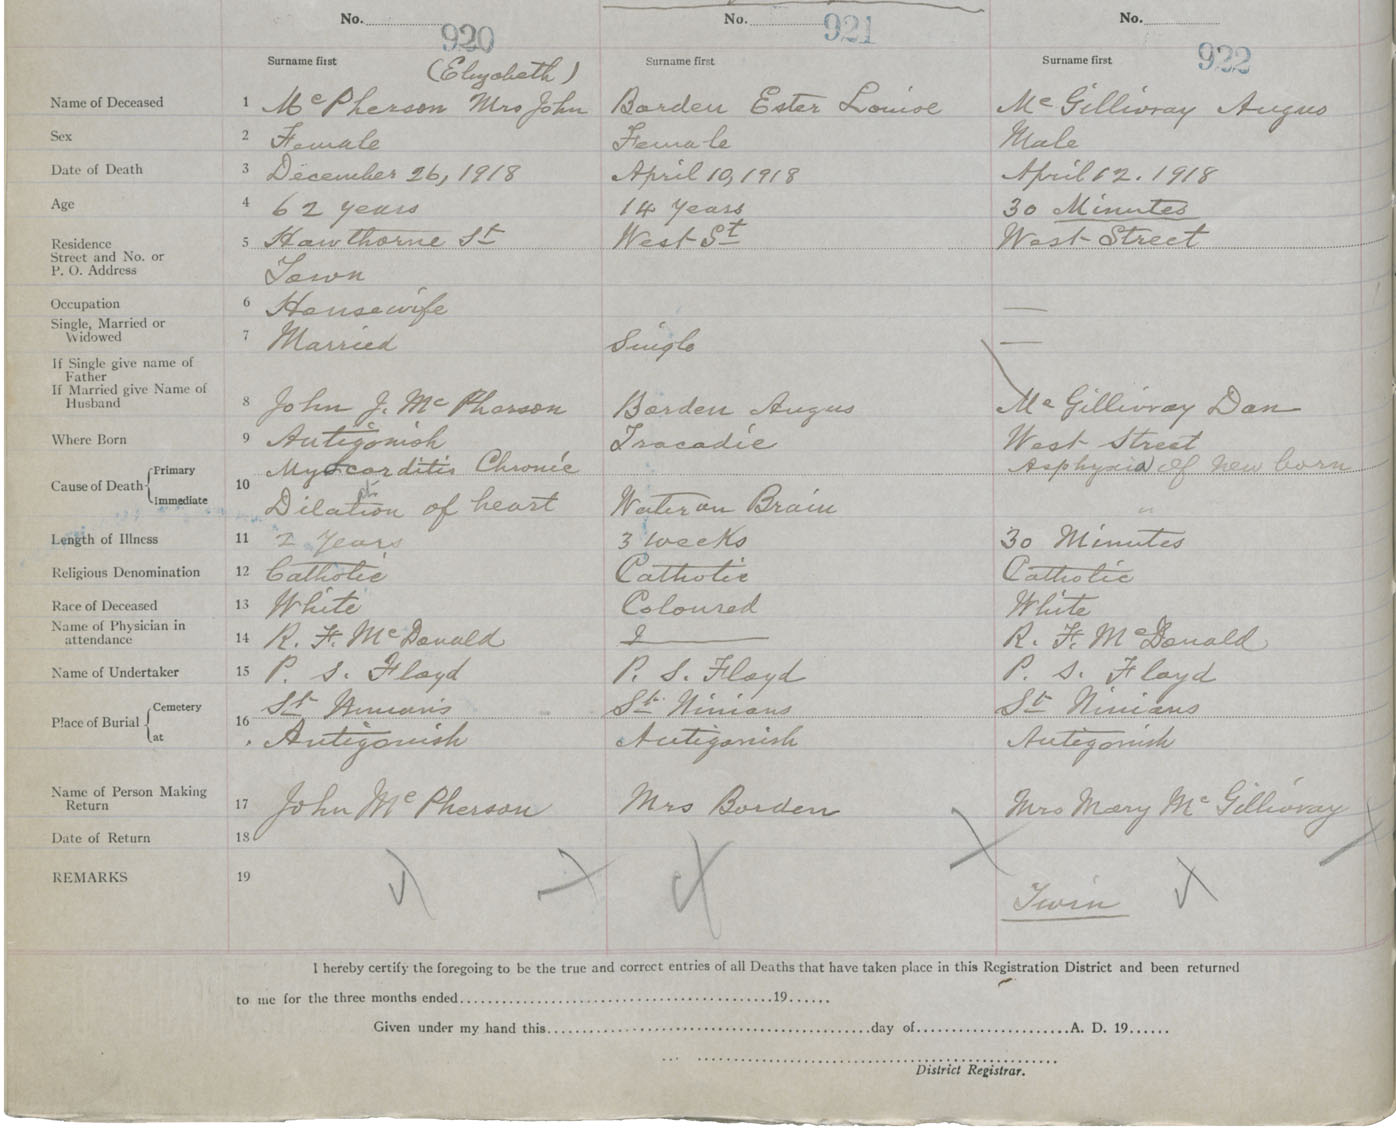 No. 920 No. 921 No. 922
Surname first Surname first Surname first
(Elizabeth)
Name of Deceased 1 McPherson Mrs John Borden Ester Louise McGillivray Angus
Sex 2 Female Female Male
Date of Death 3 December 26, 1918 April 10, 1918 April 12. 1918
Age 4 62 years 14 years 30 Minutes
Residence
Street and No. or
P. O. Address
5 Hawthorne St West St West Street
Town
Occupation 6 Housewife —
Single, Married or
Widowed
7 Married Single —
If Single give name of
Father
If Married give Name of
Husband
8 John J. McPherson Borden Angus McGillivray Dan
Where Born 9 Antigonish Tracadie West Street
Cause of Death Primary
Immediate
10 Myocarditis Chronic Asphyxia of new born
Dilation of heart Water on Brain
Length of Illness 11 2 Years 3 weeks 30 Minutes
Religious Denomination 12 Catholic Catholic Catholic
Race of Deceased 13 White Coloured White
Name of Physician in
attendance
14 R. F. McDonald — R. F. McDonald
Name of Undertaker 15 P. S. Floyd P. S. Floyd P. S. Floyd
Place of Burial Cemetery
at
16 St Ninian's St Ninians St Ninians
Antigonish Antigonish Antigonish
Name of Person Making
Return
17 John McPherson Mrs Borden Mrs Mary McGillivray
Date of Return 18
REMARKS 19 Twin
I hereby certify the foregoing to be the true and correct entries of all Deaths that have taken place in this Registration District and been returned
to me for the three months ended..........19......
Given under my hand this..........day of..........A. D. 19......
District Registrar.